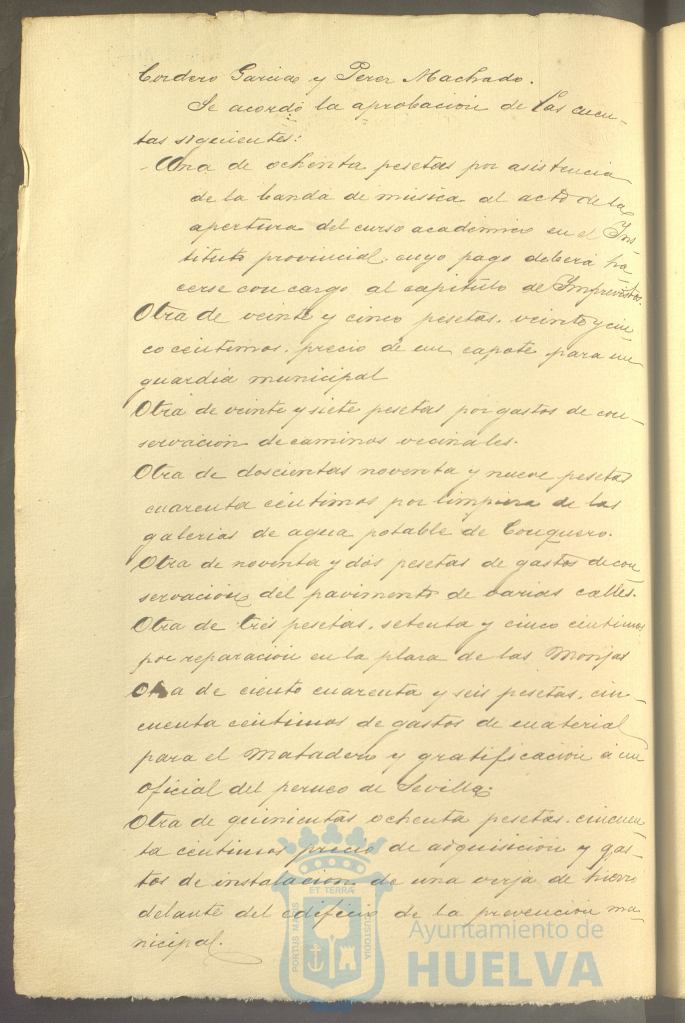 Cordero Garcia y Perez Machado.
Se acordó la aprobacion de las cuen-
tas sigientes:
-Una de ochenta pesetas por asistencia
de la banda de musica al acto de la
apertura del curso academico en el Ins
tituto provincial. cuyo pago deberá ha
cerse con cargo al capitulo de Imprevistos.
Otra de veinte y cinco pesetas. veinte y cin
co centimos. precio de un capote para un
guardia municipal
Otra de veinte y siete pesetas por gastos de con-
servacion de caminos vecinales.
Otra de doscientas noventa y nueve pesetas
cuarenta centimos por limpieza de las
galerias de agua potable de Conquero.
Otra de noventa y dos pesetas de gastos de con
servacion del pavimento de varias calles.
Otra de tres pesetas. setenta y cinco centimos
por reparacion en la plaza de las Monjas
Otra de ciento cuarenta y seis pesetas. cin-
cuenta centimos de gastos de material
para el Matadero y gratificacion á un
oficial del de Sevilla.
Otra de quinientas ochenta pesetas. cincuen
ta centimos precio de adquisicion y gas-
tos de instalacion de una verja de hierro
delante del edificio de la prevencion mu-
nicipal.
PORTUS MARIS
ET TERRÆ
CUSTODIA
Ayuntamiento de
HUELVA